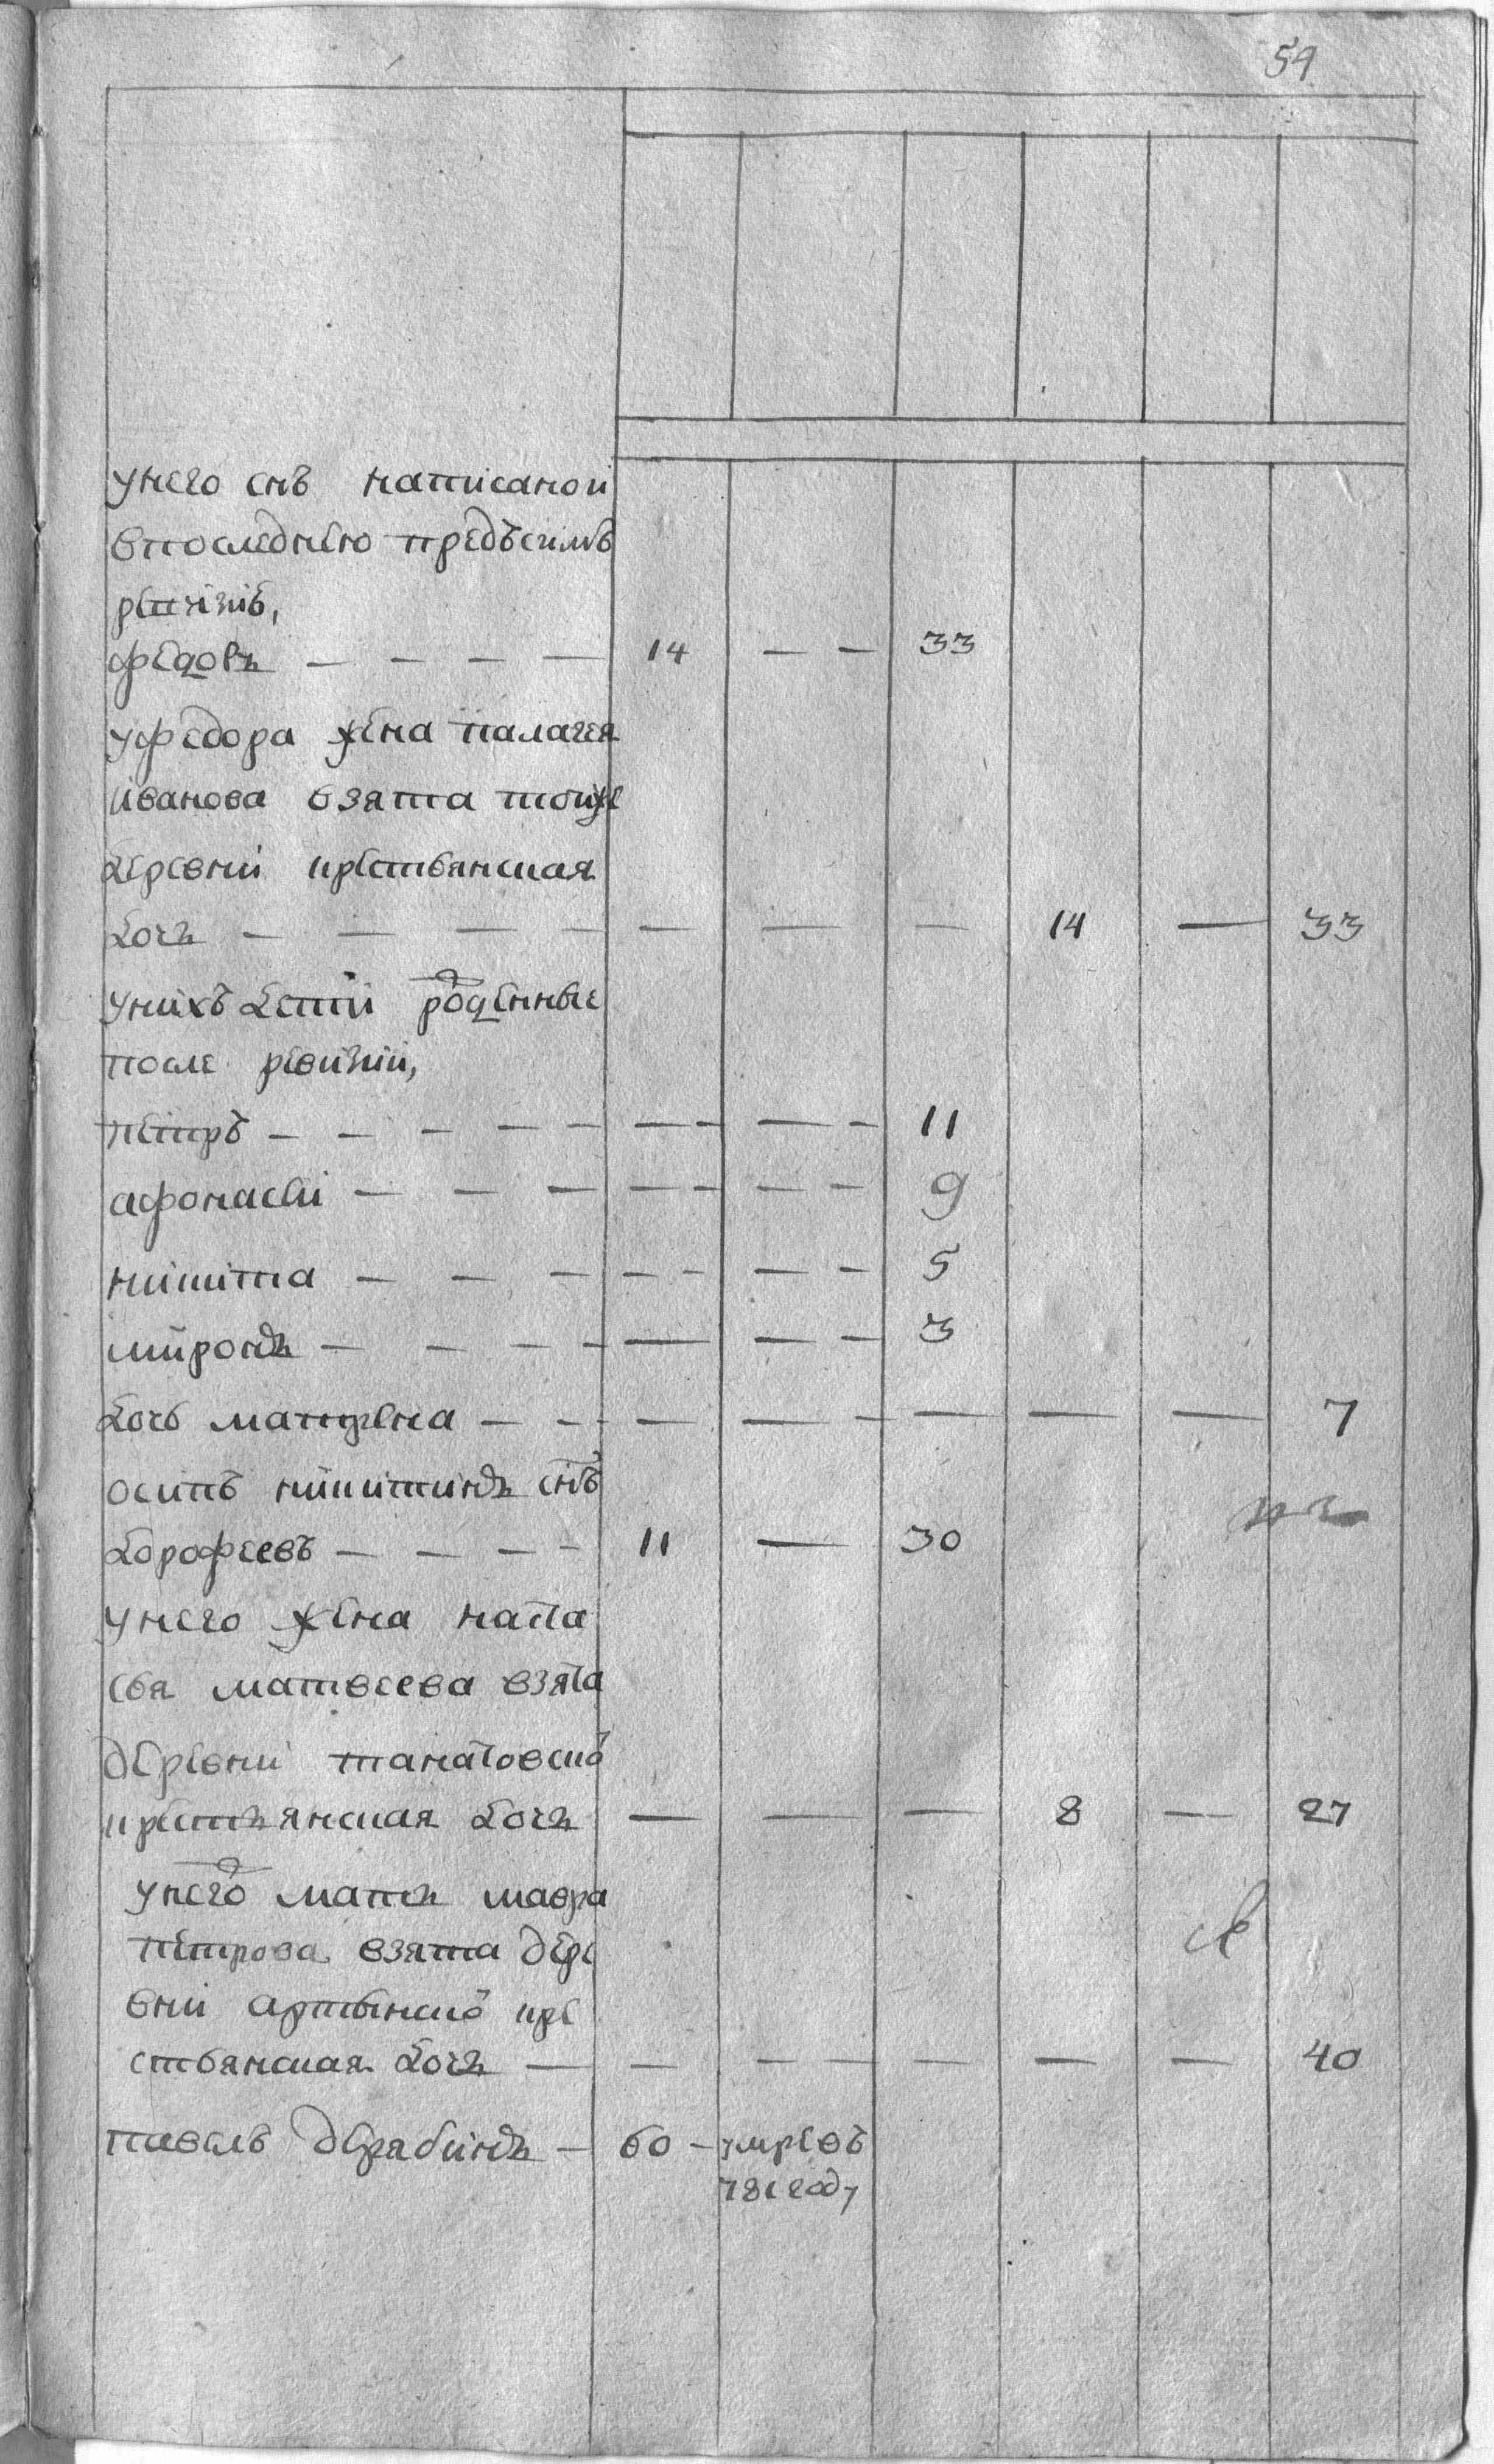 59
унего снъ написаной
впоследнею предъсимъ
ревизию,
федоръ — — — — 14 — — 33
уфедора жена палагея
иванова взята тойже
деревни крестьянская
дочь — — — — — — — 14 — 33
унихъ дети рожденные
после ревизии,
петръ — — — — — — — — — 11
афонасеи — — — — — — — 9
никита — — — — — — — 5
миронъ — — — — — — — 3
дочь матрена — — — — — — — — 7
осипъ никитинъ снъ
дорофеевъ — — — — 11 — 30
унего жена наста
сья матвеева взята
деревни танатовской
крестьянская дочь — — — 8 — 27
унего мать мавра
петрова взята дере
вни артынской кре
стьянская дочь — — — — — — — 40
павелъ дерябинъ — 60 — умревъ
году